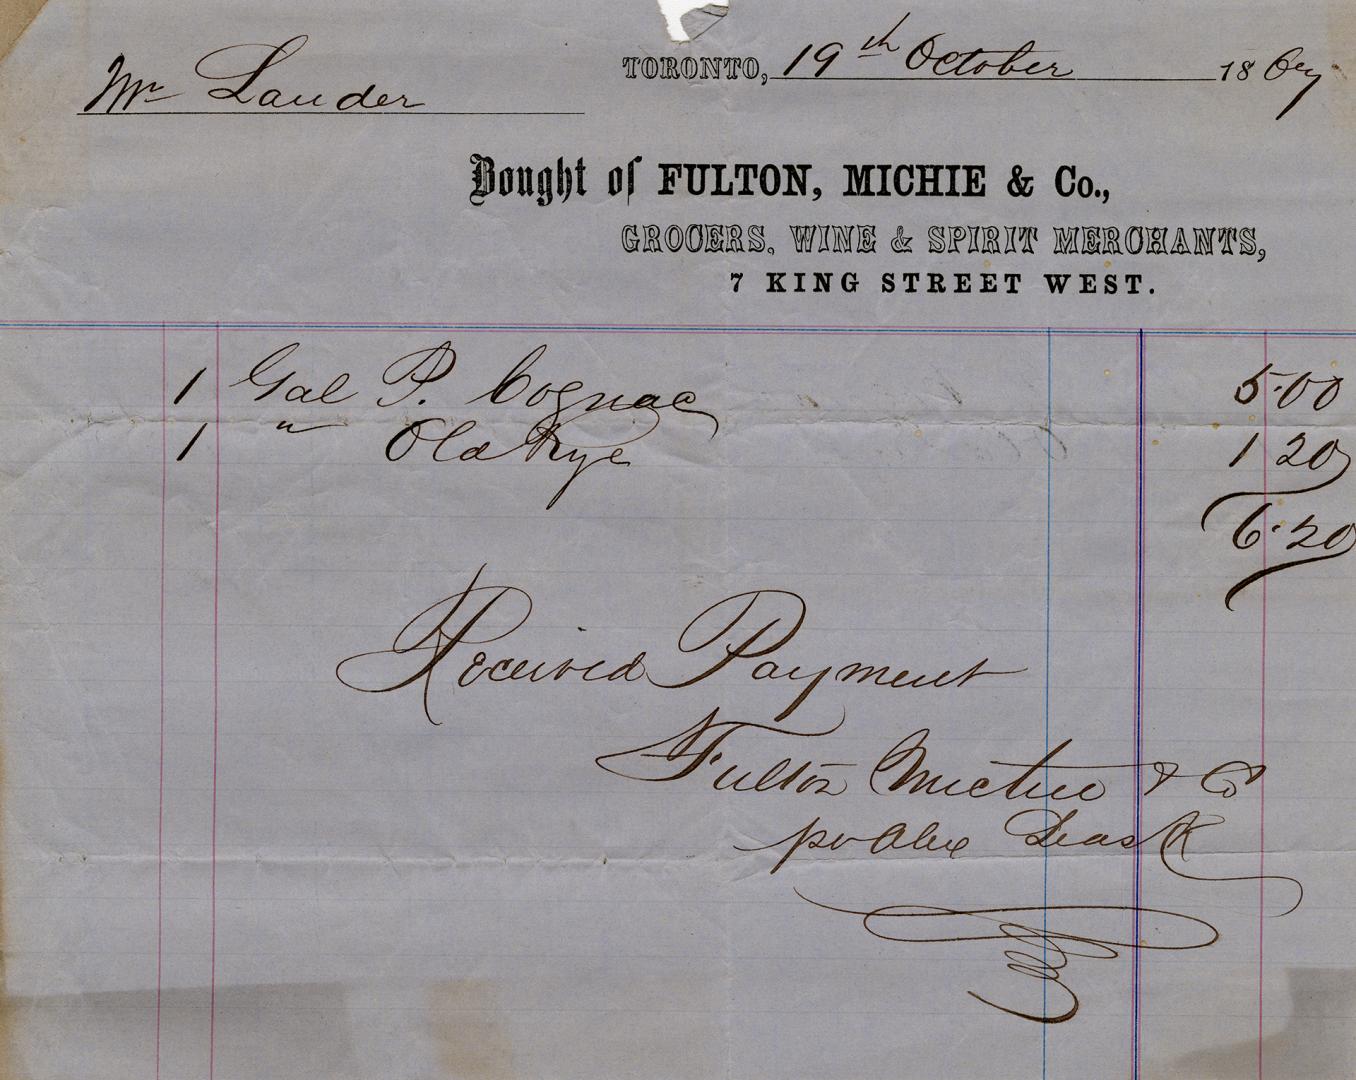 TORONTO, 19th October 1867
Mr Lauder
Bought of FULTON, MICHIE & Co.,
GROCERS, WINE & SPIRIT MERCHANTS,
7 KING STREET WEST.
1 Gal P. Cognac 5.00
1 " Old Rye 1 20
6.20
Received Payment
Fulton Michie & Co
pr Alex